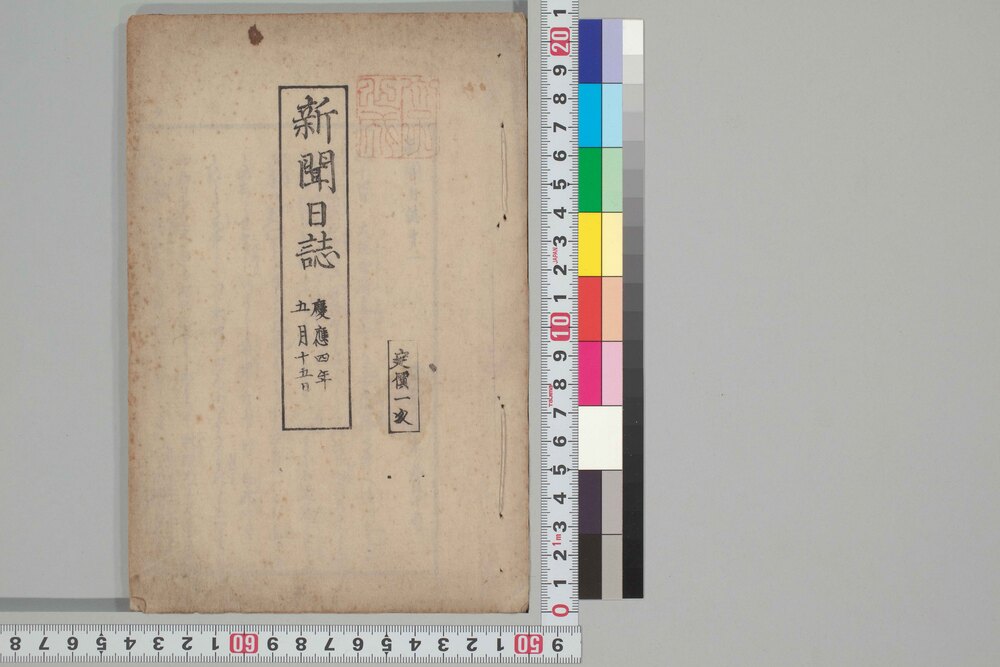 新聞日誌
慶應四年
五月十五日
定價一匁
1 20 9 8 7 6 5 4 3 2 1 10 9 8 7 6 5 4 3 2 1 0
JAPAN
1m
8 7 6 5 4 3 2 1 60 9 8 7 6 5 4 3 2 1 50 9